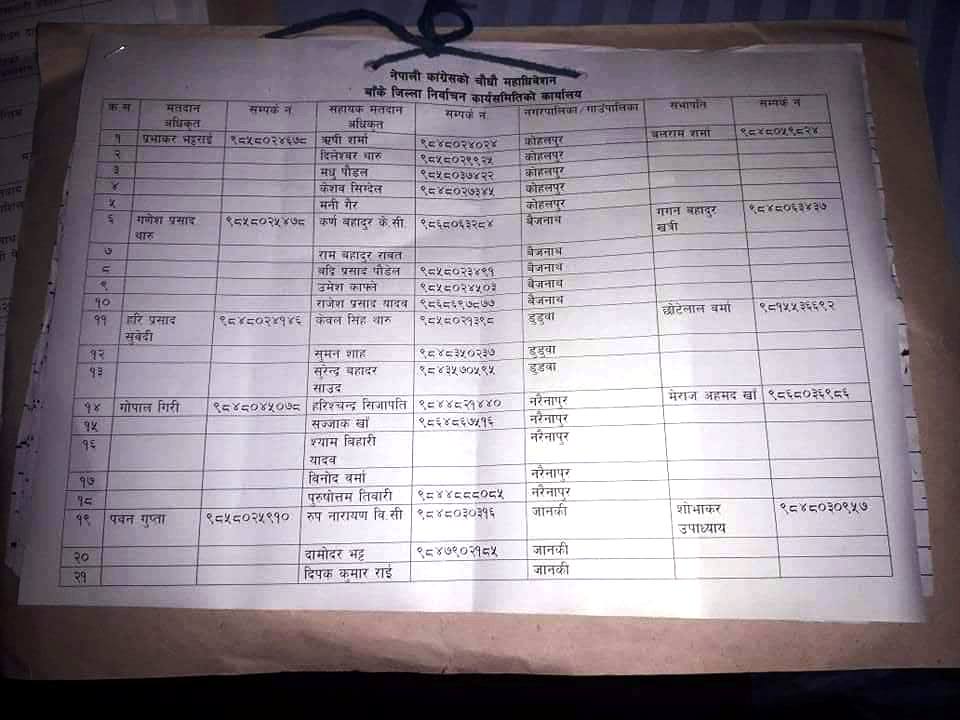 नेपाली कांग्रेसको चौधौ महाधिबेशन
बाँके जिल्ला निर्वाचन कार्यसमितिको कार्यालय
क.स मतदान अधिकृत सम्पर्क नं सहायक मतदान अधिकृत सम्पर्क नं. नगरपालिका/गाउंपालिका सभापति सम्पर्क नं
१ प्रभाकर भट्टराई ९८५८०२४६७८ ऋषी शर्मा ९८४८०२४०२४ कोहलपुर बलराम शर्मा ९८४८०५९८२४
२ दिलेश्वर थारु ९८५८०२९९२५ कोहलपुर
३ मधु पौडल ९८५८०३७४२२ कोहलपुर
४ केशव सिग्देल ९८४८०२७३४५ कोहलपुर
५ मनी गैर कोहलपुर
६ गणेश प्रसाद थारु ९८५८०२५४७८ कर्ण बहादुर के.सी. ९८६८०६३२८४ बैजनाथ गगन बहादुर खत्री ९८४८०६३४३७
७ राम बहादुर रावत बैजनाथ
८ बद्रि प्रसाद पौडेल ९८५८०२३४९१ बैजनाथ
९ उमेश काफ्ले ९८५८०२४५०३ बैजनाथ
१० राजेश प्रसाद यादव ९८६८६९७८७७ बैजनाथ
११ हरि प्रसाद सुवेदी ९८४८०२४१४६ केवल सिह थारु ९८५८०२१३९८ डुडुवा छोटेलाल वर्मा ९८१५५३६६९२
१२ सुमन शाह ९८४८३५०२३७ डुडुवा
१३ सुरेन्द्र बहादर साउद ९८४३५७०५९५ डुडुवा
१४ गोपाल गिरी ९८४८०४५०७८ हरिश्चन्द्र सिजापति ९८४४८२१४४० नरैनापुर मेराज अहमद खाँ ९८६८०३६९८६
१५ सज्जाक खाँ ९८६४८६७५१६ नरैनापुर
१६ श्याम बिहारी यादव नरैनापुर
१७ विनोद वर्मा नरैनापुर
१८ पुरुषोत्तम तिवारी ९८४४८८८०८५ नरैनापुर
१९ पवन गुप्ता ९८५८०२५९१० रुप नारायण वि.सी ९८४८०३०३१६ जानकी शोभाकर उपाध्याय ९८४८०३०९५७
२० दामोदर भट्ट ९८४७९०२१८५ जानकी
२१ दिपक कुमार राई जानकी